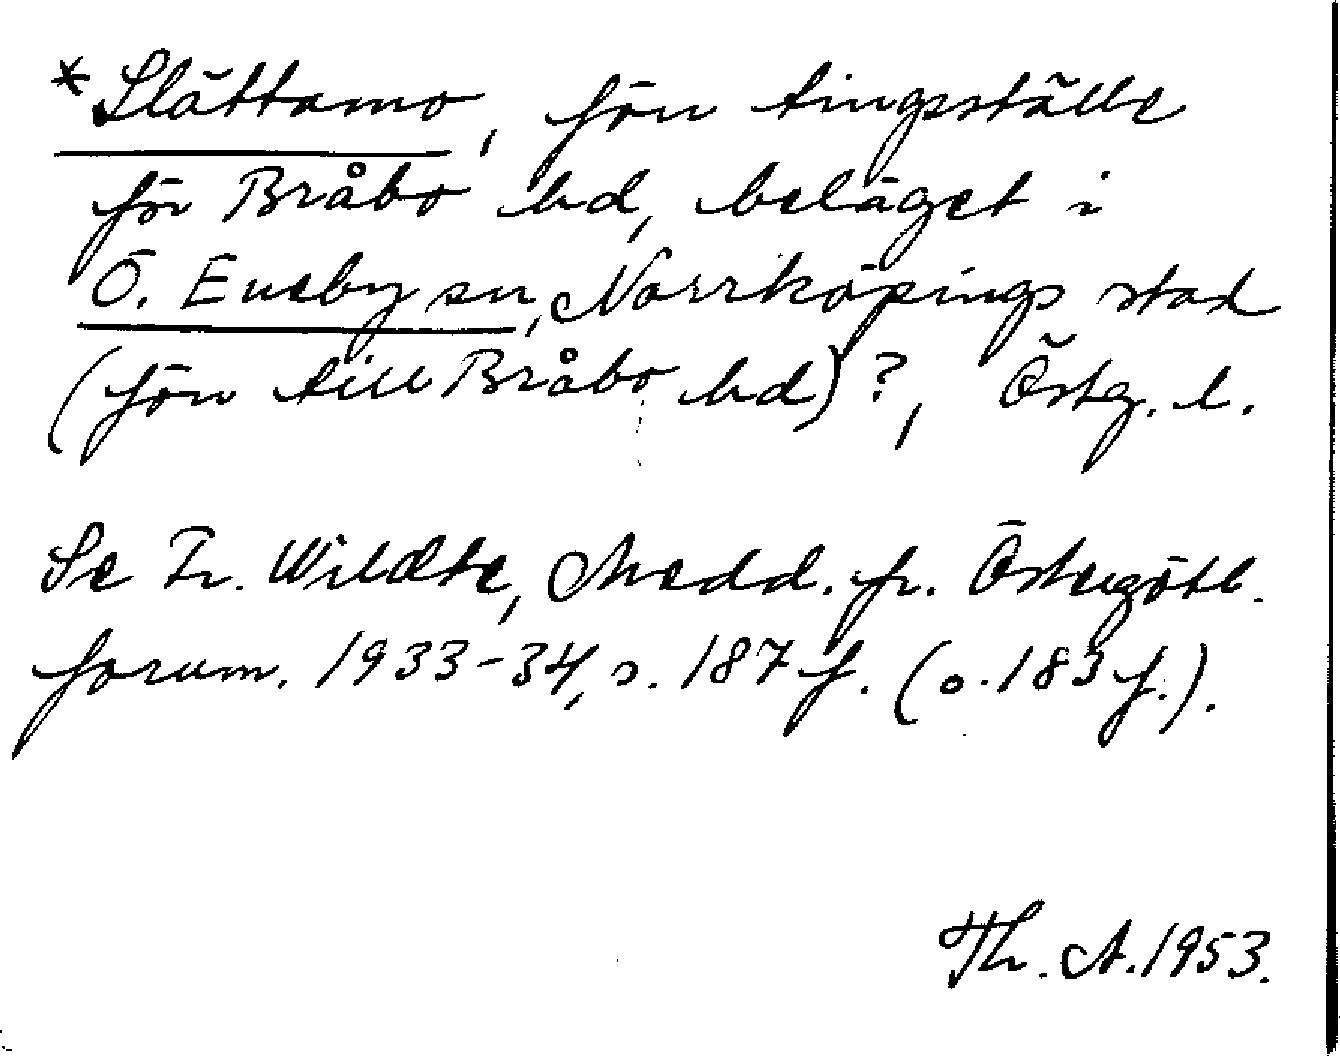 *Slättamo, förr tingsställe
för Bråbo hd, beläget i
Ö. Eneby sn, Norrköpings stad
(förr till Bråbo hd)?, Östg. l.
Se Fr. Wildte, Medd. fr. Östergötl.
fornm. 1933-34, s. 187 f. (o. 183 f.).
Th. A. 1953.